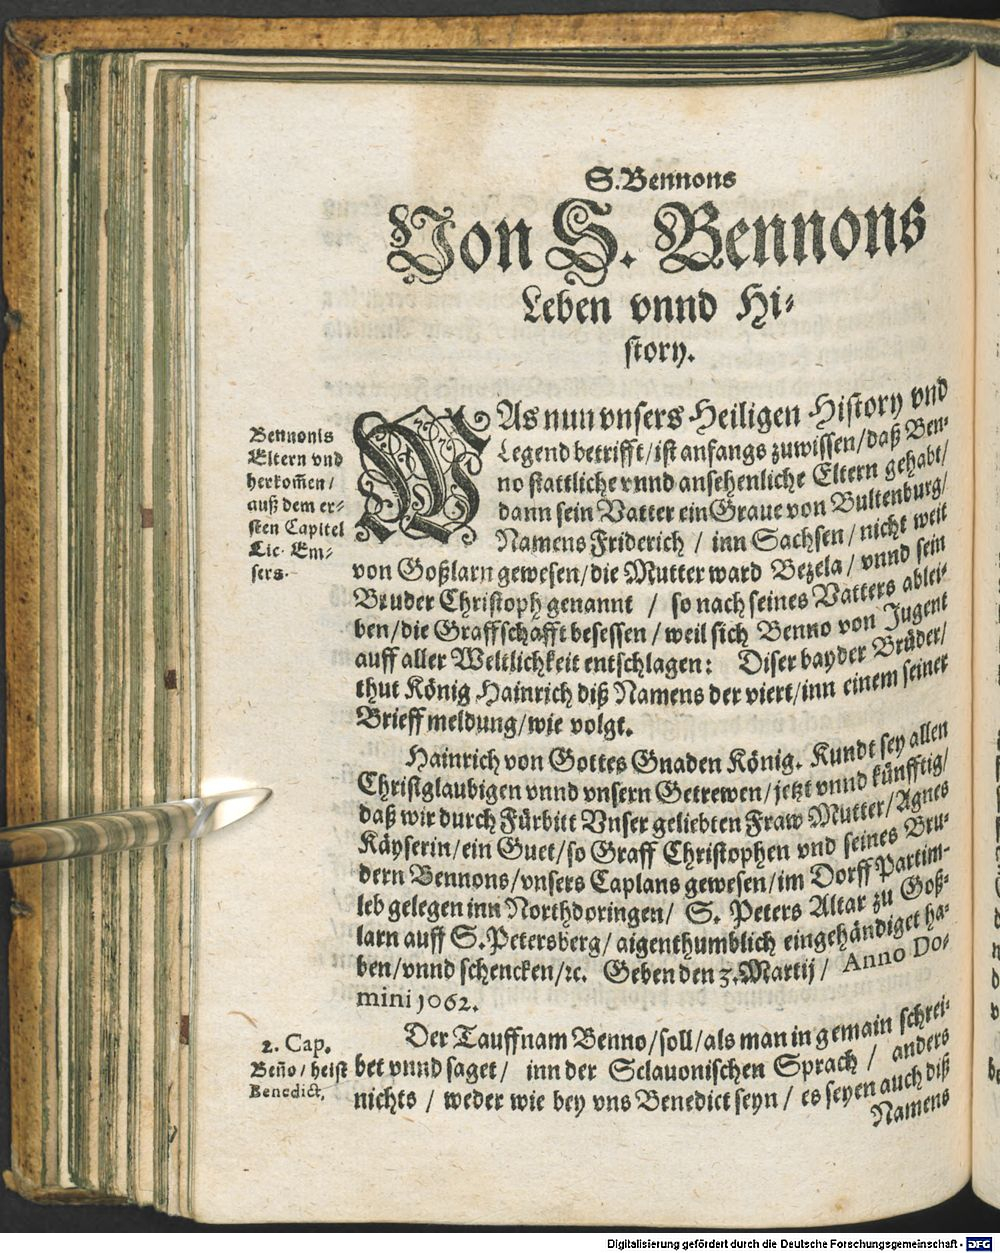 S. Bennons
Von S. Bennons
Leben vnnd Hi⸗
story.
WAs nun vnsers Heiligen History vnd
Legend betrifft / ist anfangs zuwissen / daß Ben⸗
no stattliche vnnd ansehenliche Eltern gehabt /
dann sein Vatter ein Graue von Bultenburg /
Namens Friderich / inn Sachsen / nicht weit
von Goßlarn gewesen / die Mutter ward Bezela / vnnd sein
Bruder Christoph genannt / so nach seines Vatters ablei⸗
ben / die Graffschafft besessen / weil sich Benno von Jugent
auff aller Weltlichkeit entschlagen: Diser bayder Brüder /
thut König Hainrich diß Namens der viert / inn einem seiner
Brieff meldung / wie volgt.
Bennonis
Eltern vnd
herkom̃en /
auß dem er⸗
sten Capitel
Lic. Em⸗
sers.
Hainrich von Gottes Gnaden König. Kundt sey allen
Christglaubigen vnnd vnsern Getrewen / jetzt vnnd künfftig /
daß wir durch Fürbitt Vnser geliebten Fraw Mutter / Agnes
Käyserin / ein Guet / so Graff Christophen vnd seines Bru⸗
dern Bennons / vnsers Caplans gewesen / im Dorff Partim⸗
leb gelegen inn Northdoringen / S. Peters Altar zu Goß⸗
larn auff S. Petersberg / aigenthumblich eingehändiget ha⸗
ben / vnnd schencken / ꝛc. Geben den 3. Martij / Anno Do⸗
mini 1062.
Der Tauffnam Benno / soll / als man in gemain schrei⸗
bet vnnd saget / inn der Sclauonischen Sprach / anders
nichts / weder wie bey vns Benedict seyn / es seyen auch diß
Namens
2. Cap.
Beño / heist
Benedict.
Digitalisierung gefördert durch die Deutsche Forschungsgemeinschaft - DFG